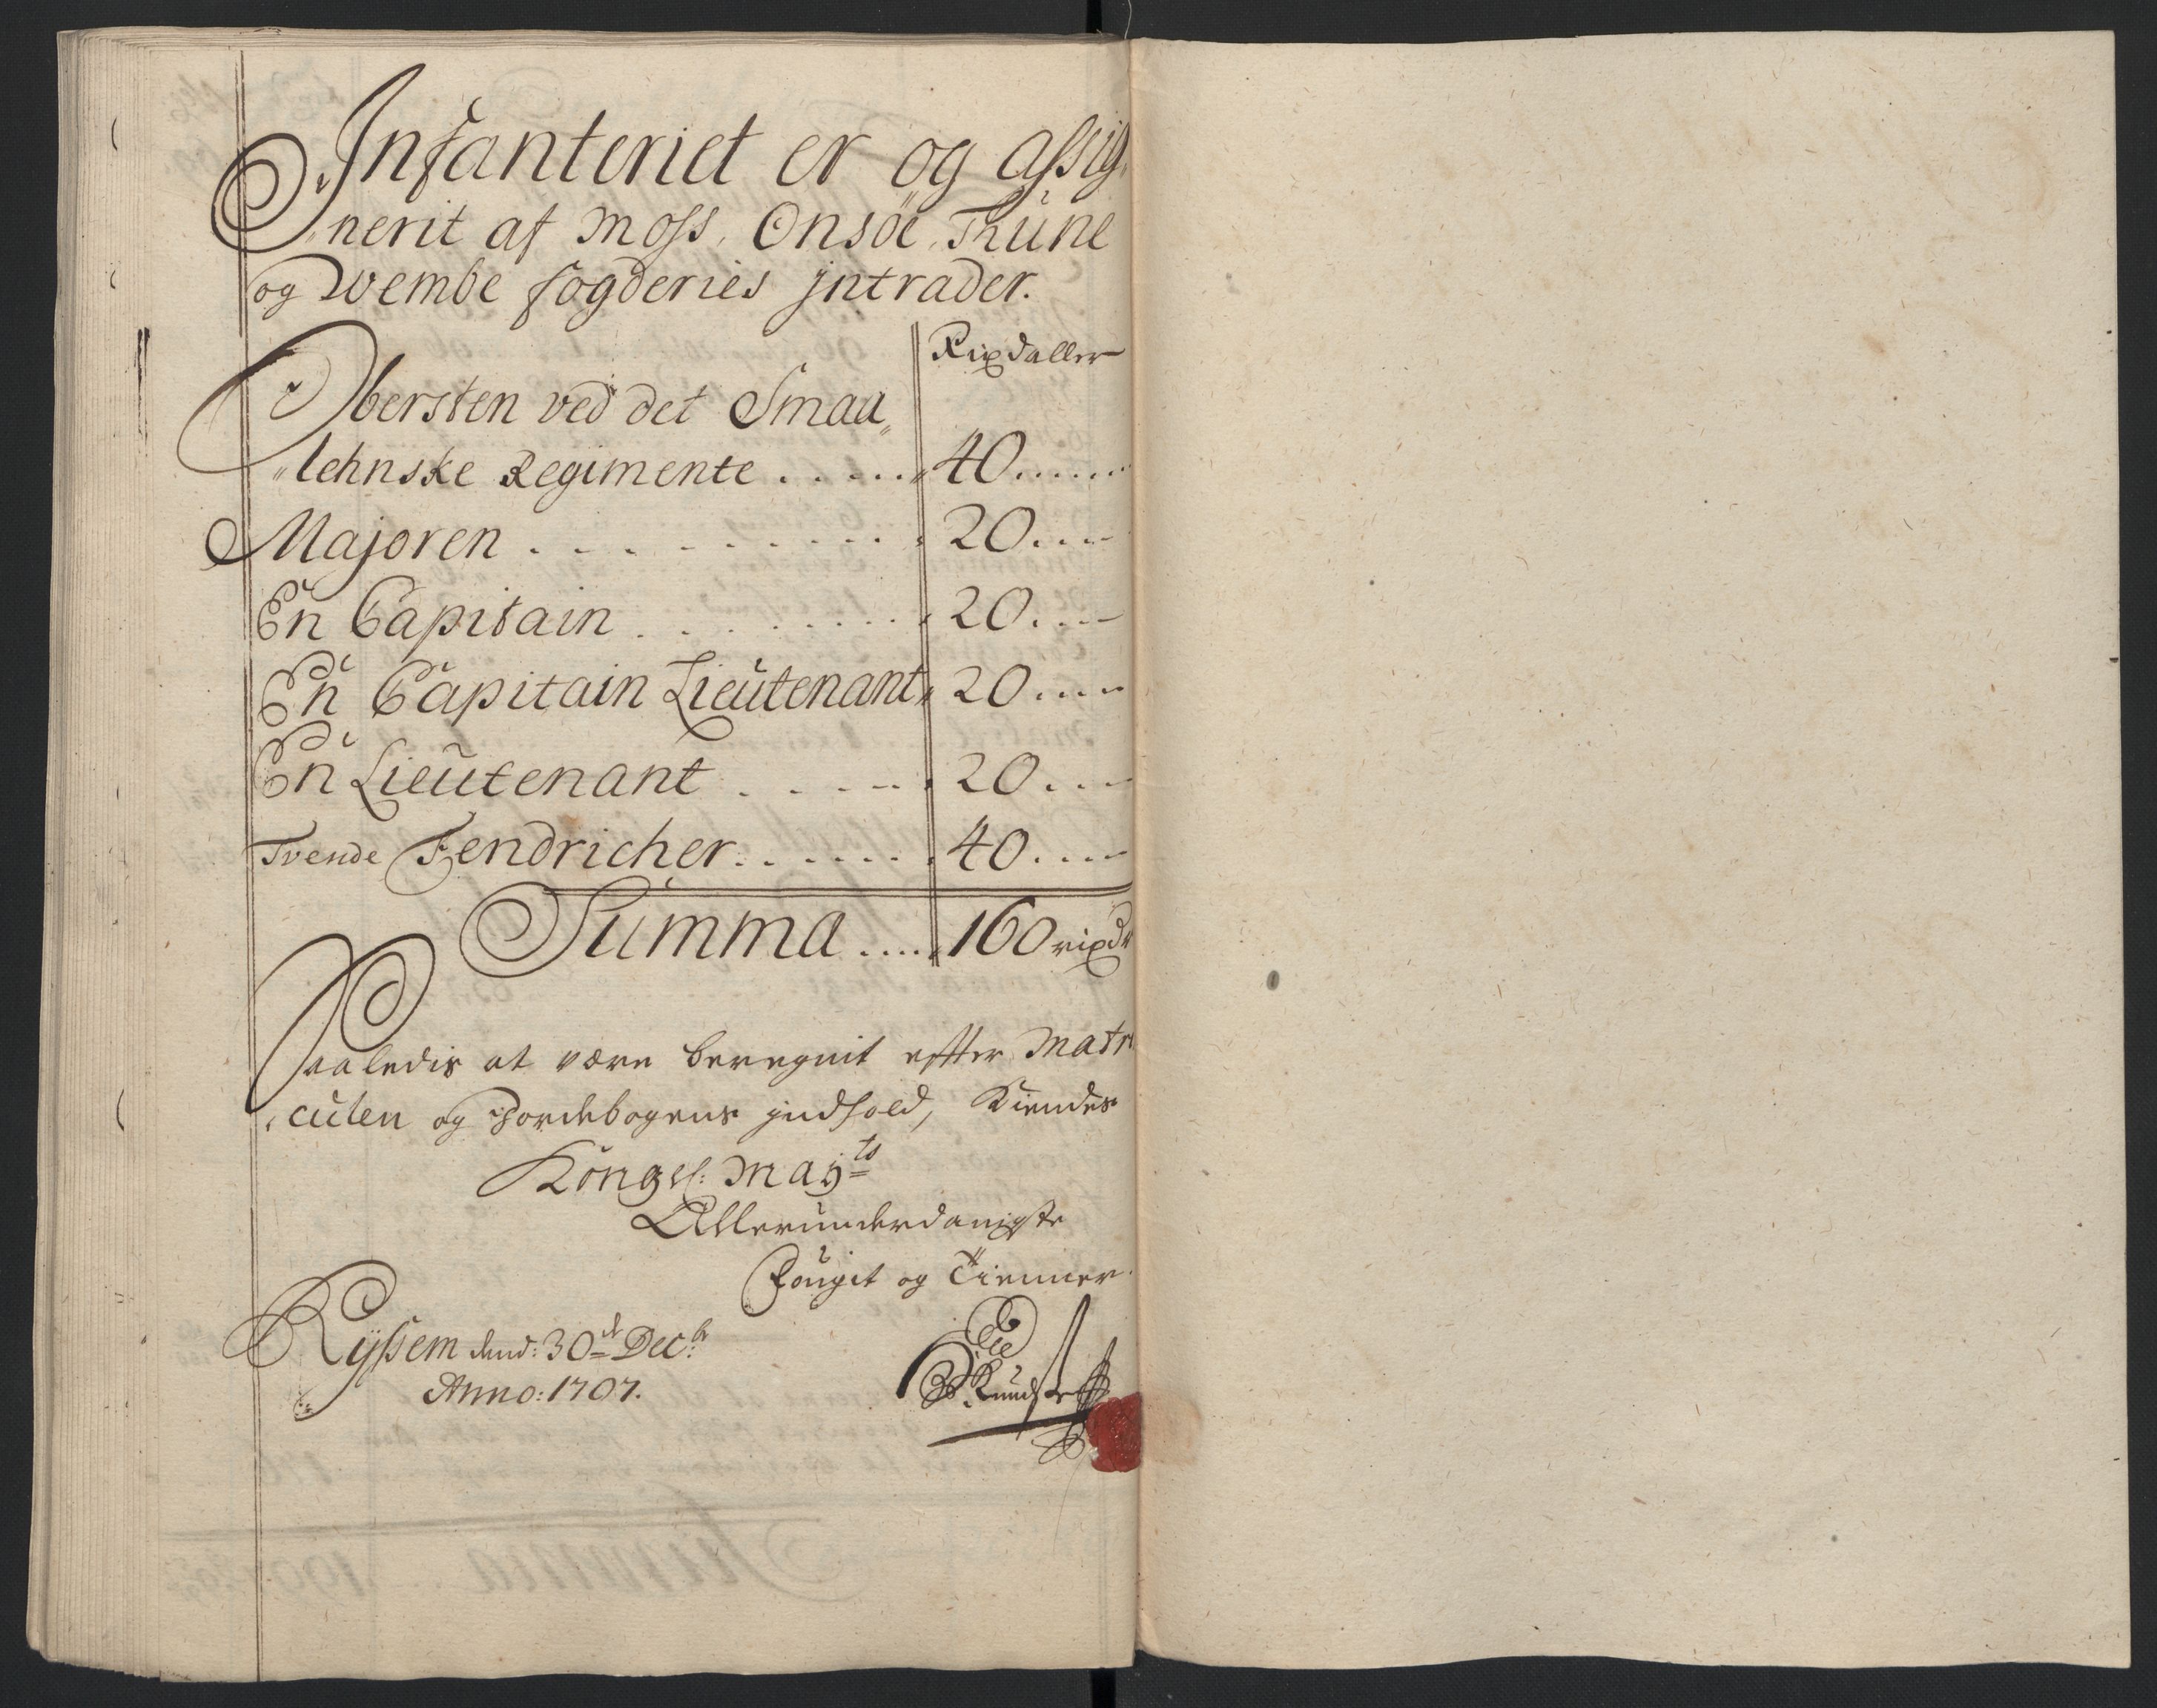 Infanteriet er og assig
nerit af Moss, Onsöe, Thune
og Wembe fogderies jntrader.
Rixdaller
Obersten ved det Smaa„
„lehnske Regimente . . . . . 40 . . . . .
Majoren . . . . . . . . . . 20 . . . .
En Capitain . . . . . . . . 20 . . . .
En Capitain Lieutenant, 20 . . . .
En Lieutenant . . . . . 20 . . . .
Tvende Fendricher . . . . . . 40 . . . .
Summa . . . . 160 rixdr
Saaledis at være beregnit effter Matri
culen og Jordebogens jndhold, Kiendes
Kongel: Mayts
Allerunderdanigste
Fougit og Tienner
Ryssem dend: 30te Decbr
Anno: 1707.